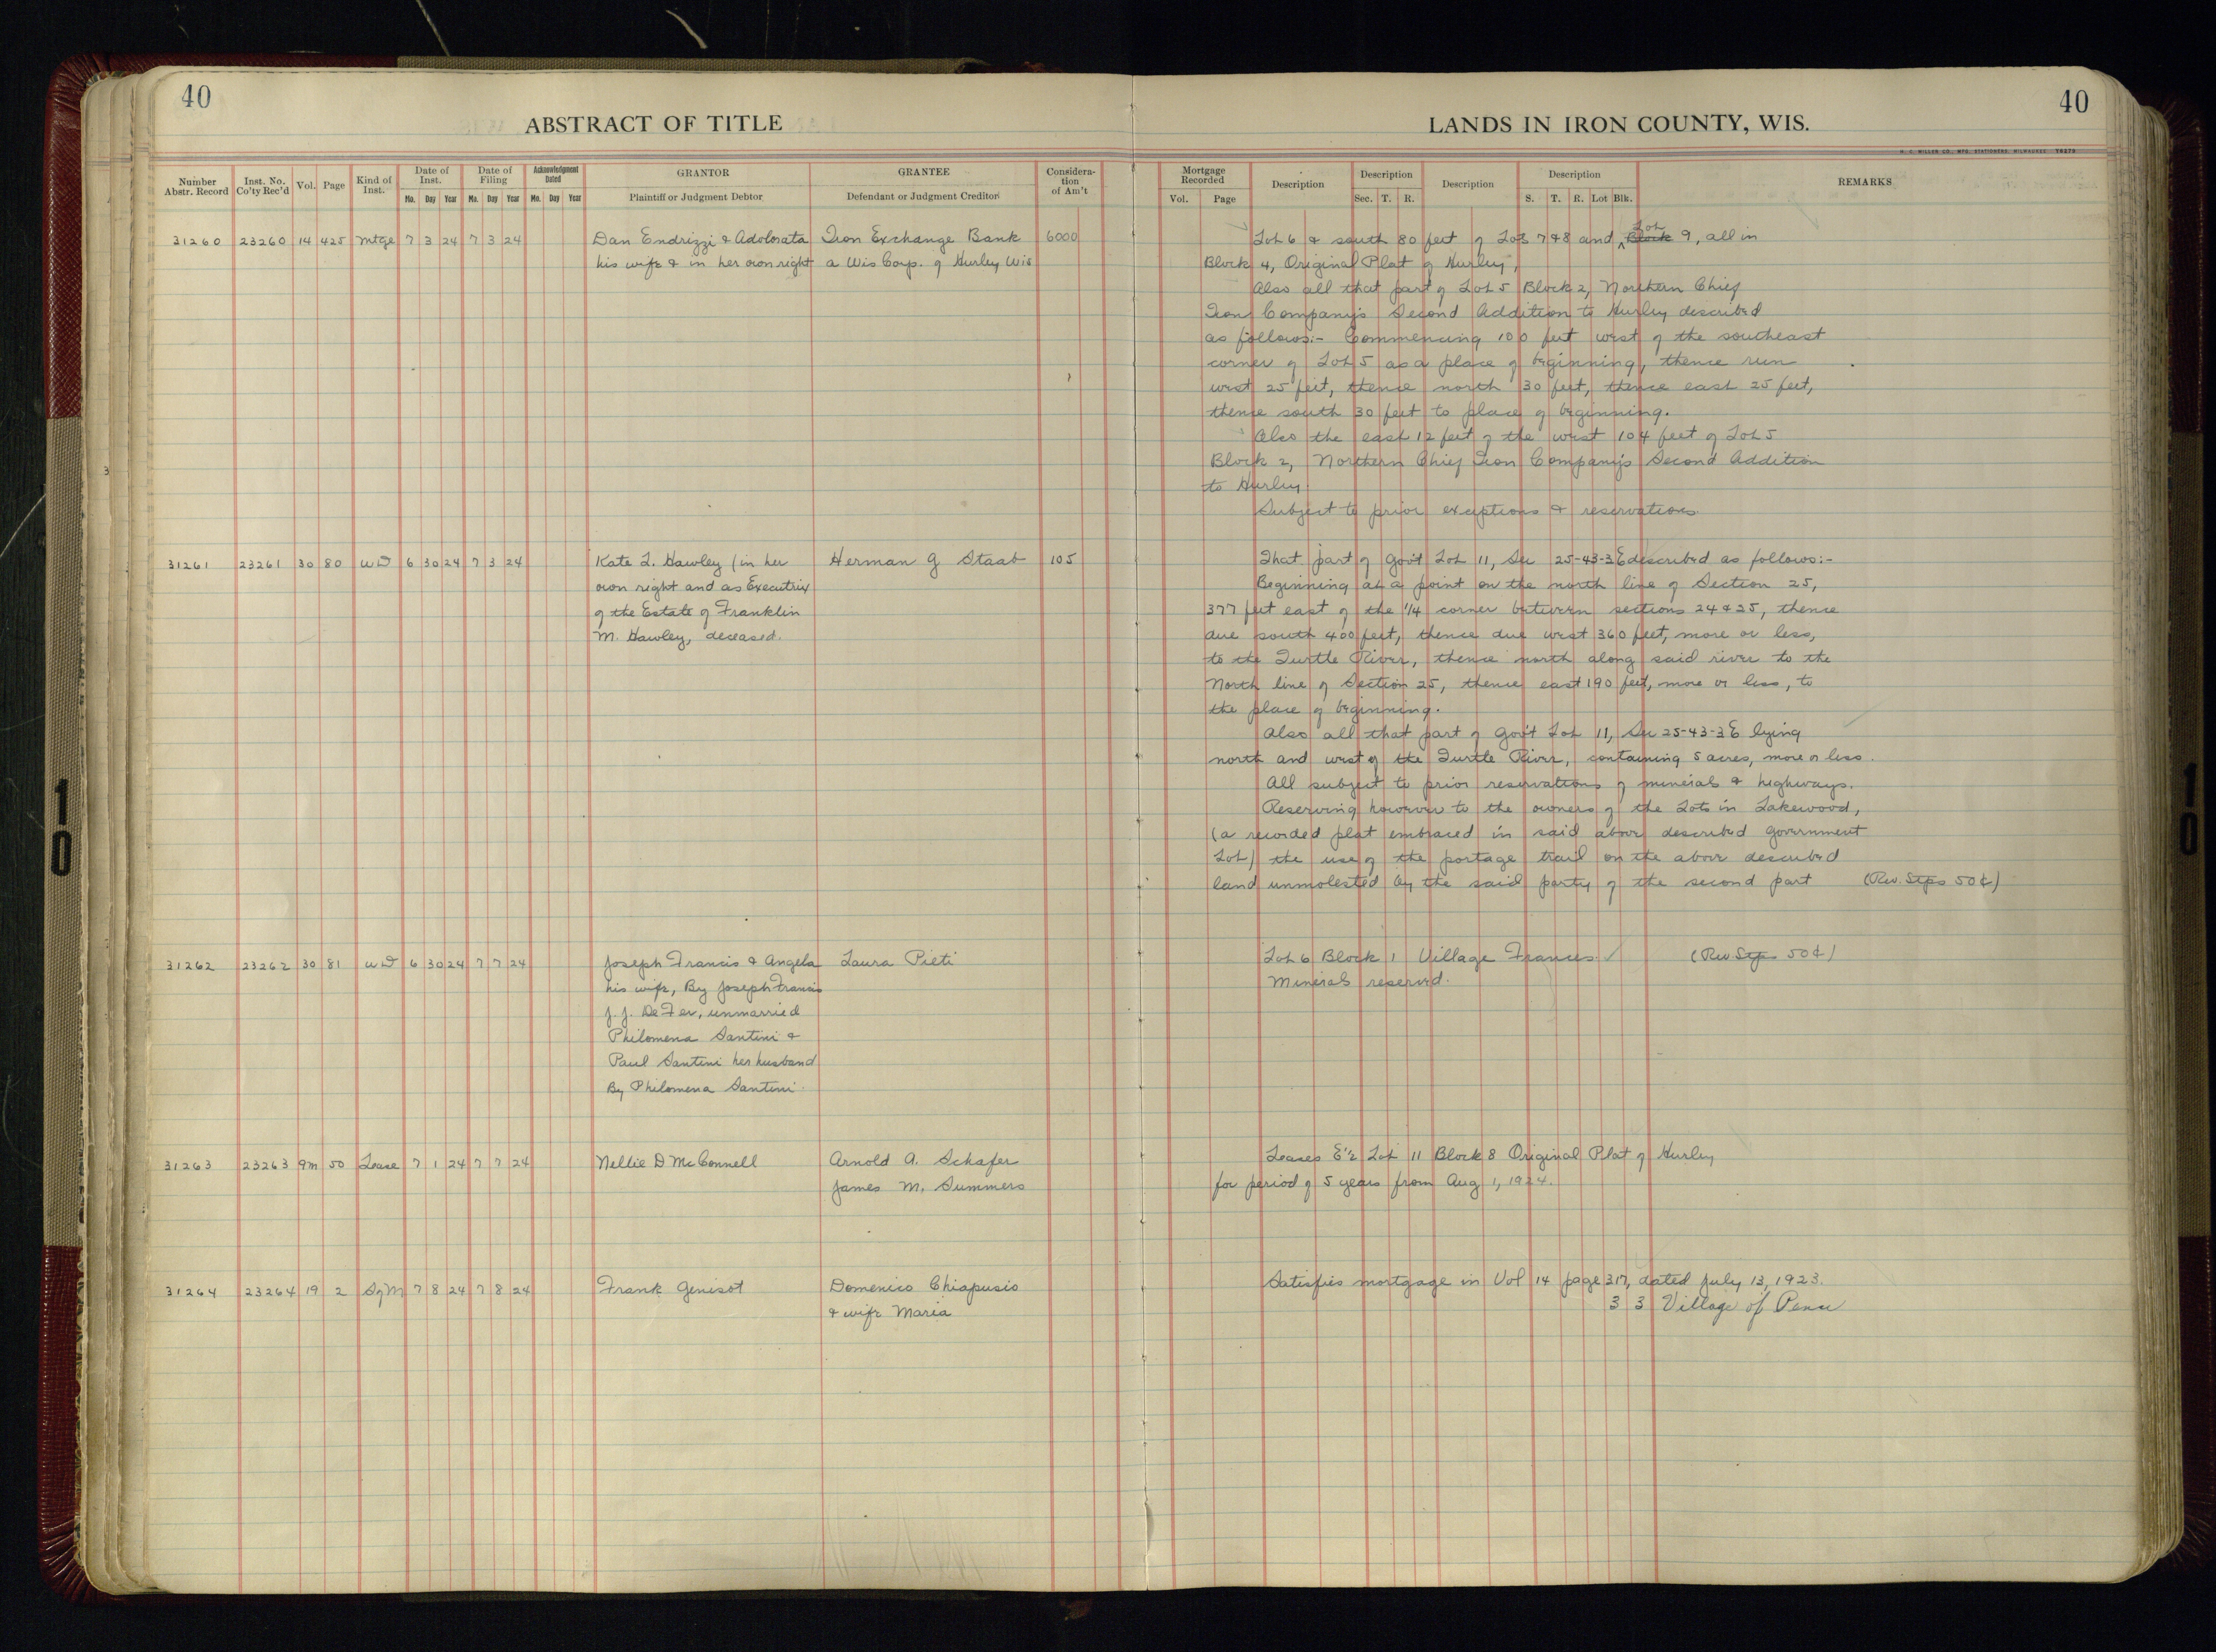 40
ABSTRACT OF TITLE
Number Abstr. Record
Inst. No. Co'ty Rec'd
Vol.
Page
Kind of Inst.
Date of Inst.
Mo. Day Year
Date of Filing
Mo. Day Year
Acknowledgment Dated
Mo. Day Year
GRANTOR
Plaintiff or Judgment Debtor
GRANTEE
Defendant or Judgment Creditor
Consideration of Am't
31260 23260 14 425 Mtge 7 3 24 7 3 24 Dan Endrizzi & Adolorata Iron Exchange Bank 6000
his wife & in her own right a Wis Corp. of Hurley Wis
31261 23261 30 80 WD 6 30 24 7 3 24 Kate L. Hawley (in her Herman G Staab 105
own right and as Executrix
of the Estate of Franklin
M. Hawley, deceased.
31262 23262 30 81 WD 6 30 24 7 7 24 Joseph Francis & Angela Laura Pieti
his wife, By Joseph Francis
J. J. De Fer, unmarried
Philomena Santini &
Paul Santini her husband
By Philomena Santini
31263 23263 9m 50 Lease 7 1 24 7 7 24 Nellie D McConnell Arnold A. Schafer
James M. Summers
31264 23264 19 2 SqM 7 8 24 7 8 24 Frank Genisot Domenico Chiapusio
& wife Maria
40
LANDS IN IRON COUNTY, WIS.
H. C. MILLER CO., MFG. STATIONERS, MILWAUKEE
Mortgage Recorded
Vol. Page
Description
Description
Sec. T. R.
Description
Description
S. T. R. Lot Blk.
REMARKS
Lot
Lot 6 & south 80 feet of Lots 7 & 8 and Block 9, all in
Block 4, Original Plat of Hurley,
Also all that part of Lot 5 Block 2, Northern Chief
Iron Company's Second Addition to Hurley described
as follows:- Commencing 100 feet west of the southeast
corner of Lot 5 as a place of beginning, thence run
west 25 feet, thence north 30 feet, thence east 25 feet,
thence south 30 feet to place of beginning.
Also the east 12 feet of the west 104 feet of Lot 5
Block 2, Northern Chief Iron Company's Second Addition
to Hurley
Subject to prior exceptions & reservations.
That part of Gov't Lot 11, Sec 25-43-3E described as follows:-
Beginning at a point on the north line of Section 25,
377 feet east of the 1/4 corner between sections 24 & 25, thence
due south 400 feet, thence due west 360 feet, more or less,
to the Turtle River, thence north along said river to the
North line of Section 25, thence east 190 feet, more or less, to
the place of beginning.
Also all that part of Gov't Lot 11, Sec 25-43-3E lying
north and west of the Turtle River, containing 5 acres, more or less.
All subject to prior reservations of minerals & highways.
Reserving however to the owners of the Lots in Lakewood,
(a recorded plat embraced in said above described Government
Lot) the use of the portage trail on the above described
land unmolested by the said party of the second part (Rev. Stps 50¢)
Lot 6 Block 1 Village Francis (Rev Stps 50¢)
Minerals reserved.
Leases E½ Lot 11 Block 8 Original Plat of Hurley
for period of 5 years from Aug 1, 1924.
Satisfies mortgage in Vol 14 page 317, dated July 13, 1923.
3 3 Village of Pence
3
10
10